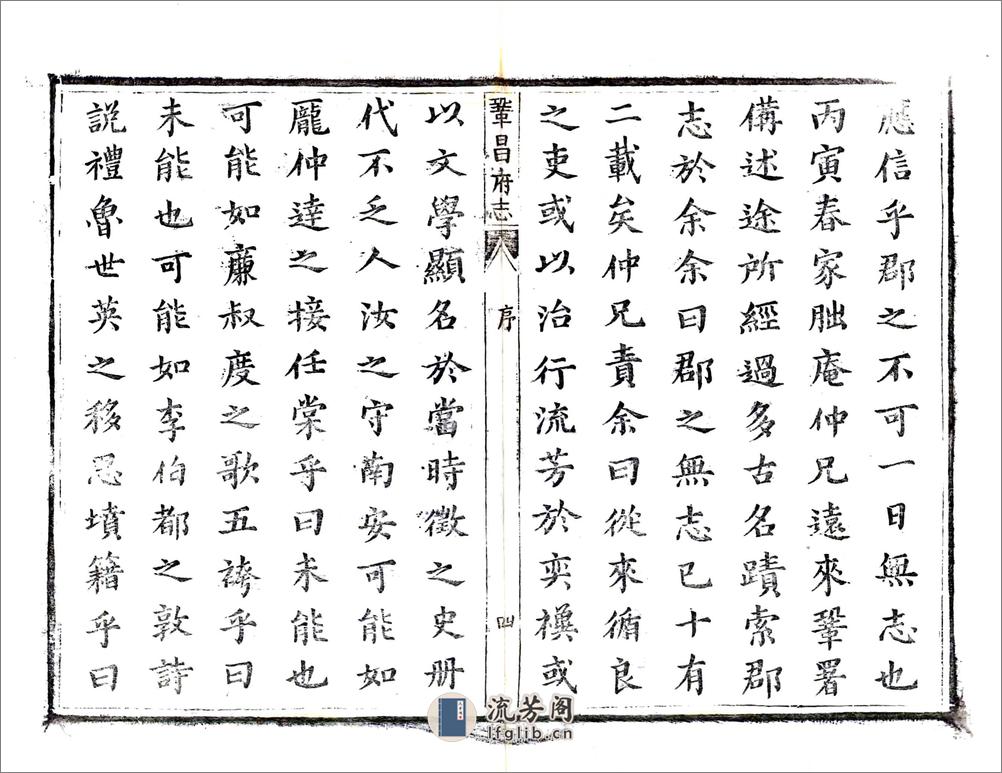 應信乎郡之不可一日無志也
丙寅春家朏庵仲兄遠來鞏署
備述途所經過多古名蹟索郡
志於余余曰郡之無志已十有
二載矣仲兄責余曰從來循良
之吏或以治行流芳於奕禩或
鞏昌府志 序 四
以文學顯名於當時徵之史册
代不乏人汝之守南安可能如
龐仲達之接任棠乎曰未能也
可能如廉叔度之歌五袴乎曰
未能也可能如李伯都之敦詩
說禮魯世英之移思墳籍乎曰
流芳阁
lfglib.cn